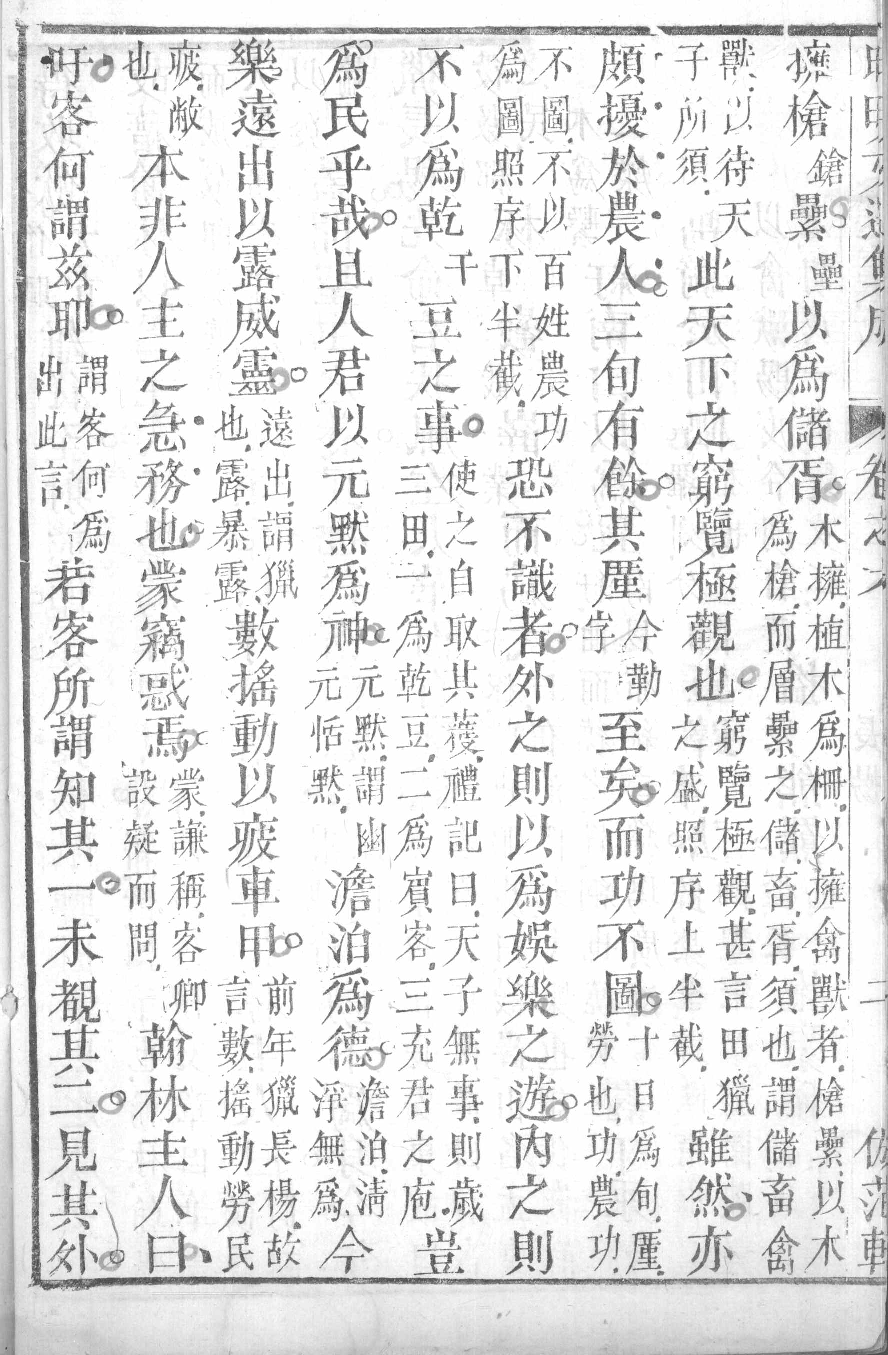 擁槍鎗纍壘以爲儲胥木擁植木爲柵以擁禽獸者槍纍以木爲槍而層纍之儲畜胥須也謂儲畜禽
獸以待天子所須此天下之窮覽極觀也窮覽極觀甚言田獵之盛照序上半截雖然亦
頗擾於農人三旬有餘其廑今勤字至矣而功不圖十日爲旬廑勞也功農功
不圖不以百姓農功爲圖照序下半截恐不識者外之則以爲娛樂之遊內之則
不以爲乾干豆之事使之自取其蒦禮記曰天子無事則歲三田一爲乾豆二爲賓客三充君之庖豈
爲民乎哉且人君以元默爲神元默謂幽元恬默澹泊爲德澹泊清淨無爲今
樂遠出以露威靈遠出謂獵也露暴露數搖動以疲車甲前年獵長楊故言數搖動勞民
疲敝也本非人主之急務也蒙竊惑焉蒙謙稱客卿設疑而問翰林主人曰
吁客何謂茲耶謂客何爲出此言若客所謂知其一未覩其二見其外